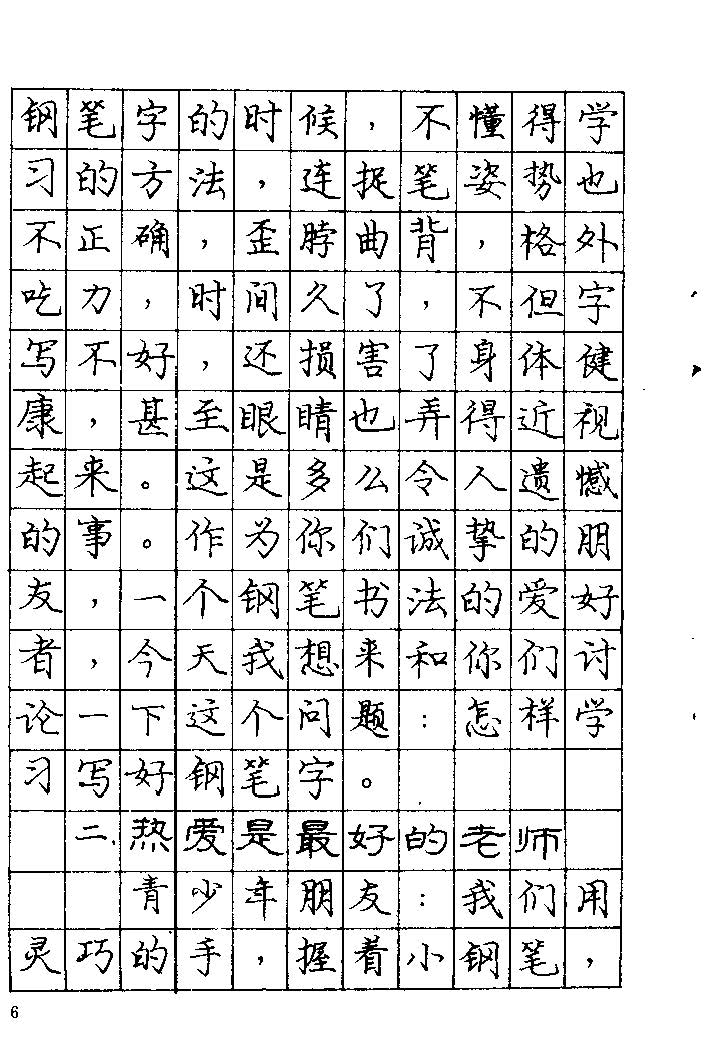 钢笔字的时候，不懂得学
习的方法，连捉笔姿势也
不正确，歪脖曲背，格外
吃力，时间久了，不但字
写不好，还损害了身体健
康，甚至眼睛也弄得近视
起来。这是多么令人遗憾
的事。作为你们诚挚的朋
友，一个钢笔书法的爱好
者，今天我想来和你们讨
论一下这个问题：怎样学
习写好钢笔字。
二、热爱是最好的老师
青少年朋友：我们用
灵巧的手，握着小钢笔，
6